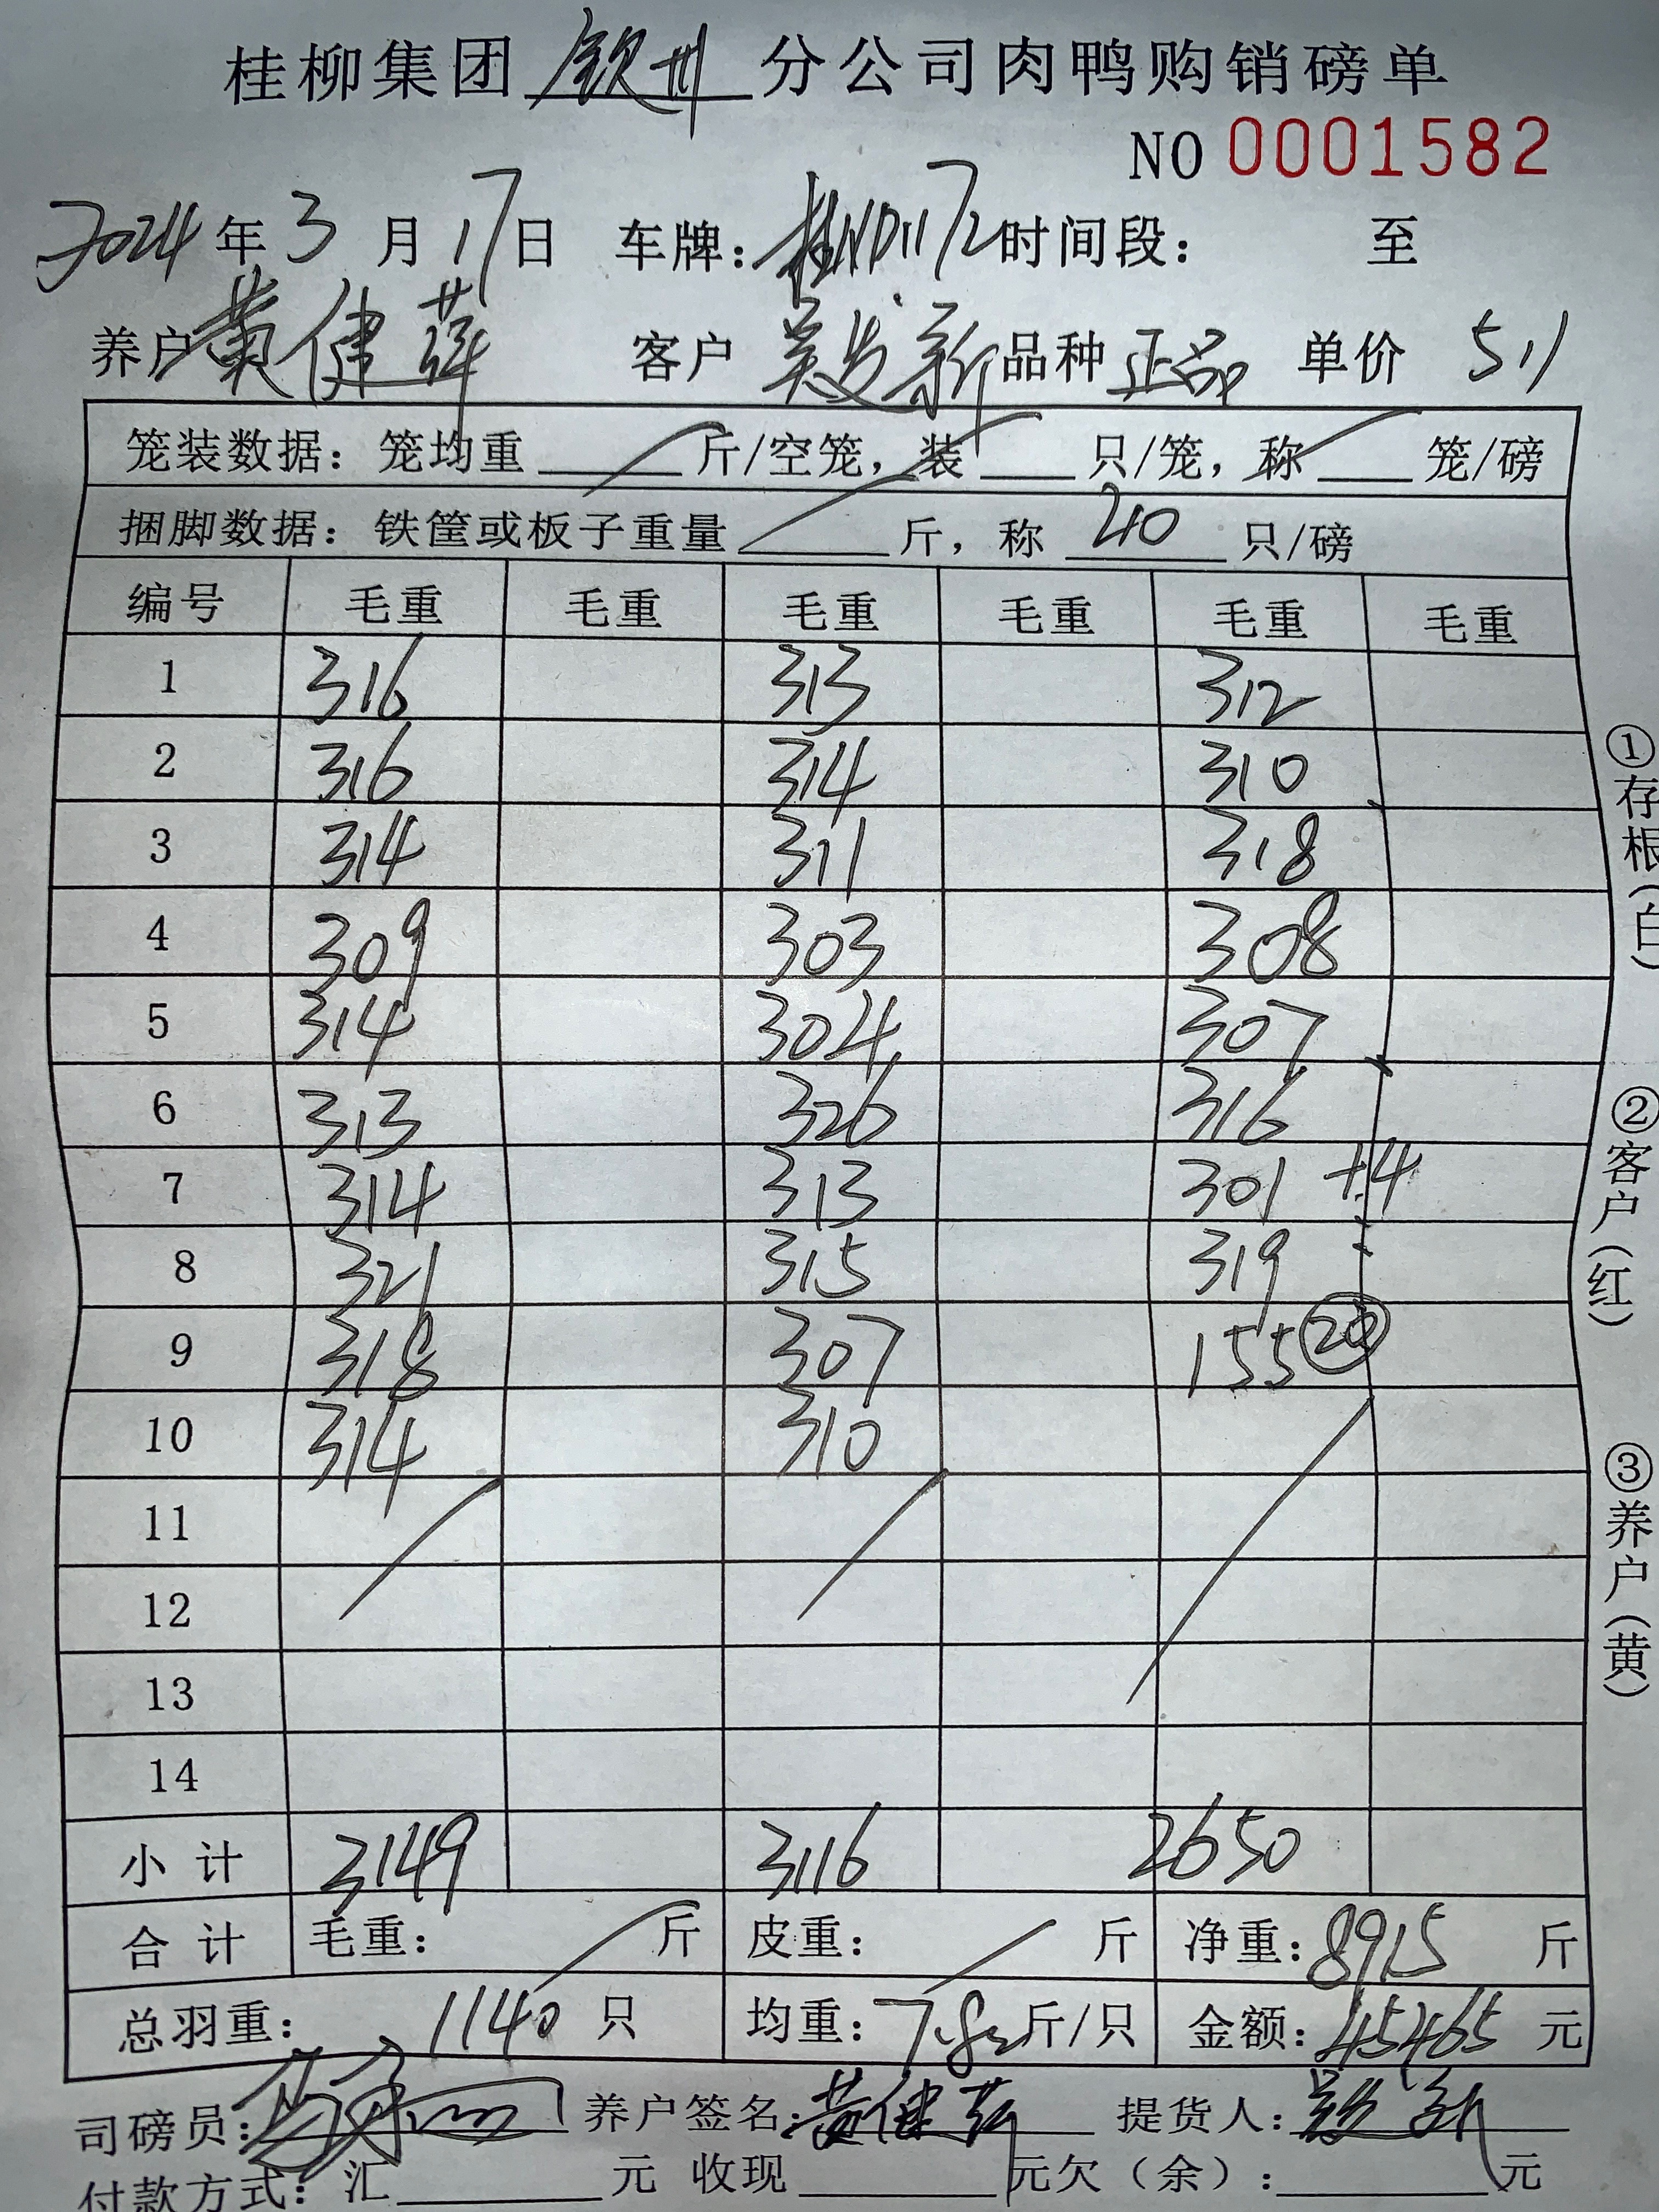 桂柳集团 钦州 分公司肉鸭购销磅单
NO 0001582
2024 年 3 月 17 日 车牌: 时间段: 至
养户 黄健萍 客户 吴发新 品种 正品 单价 5.1
笼装数据: 笼均重 斤/空笼, 装 只/笼, 称 笼/磅
捆脚数据: 铁筐或板子重量 斤, 称 40 只/磅
编号 毛重 毛重 毛重 毛重 毛重 毛重
1 316 313 312
2 316 314 310
3 314 311 318
4 309 303 308
5 314 304 307
6 313 326 316
7 314 313 301 +4
8 321 315 319
9 318 307 155 20
10 314 310
11
12
13
14
小计 3149 3116 2650
合计 毛重: 斤 皮重: 斤 净重: 8915 斤
总羽重: 1140 只 均重: 7.82 斤/只 金额: 45465 元
司磅员: 养户签名: 黄健萍 提货人: 吴发新
付款方式: 汇 元 收现 元欠(余): 元
①存根(白)
②客户(红)
③养户(黄)